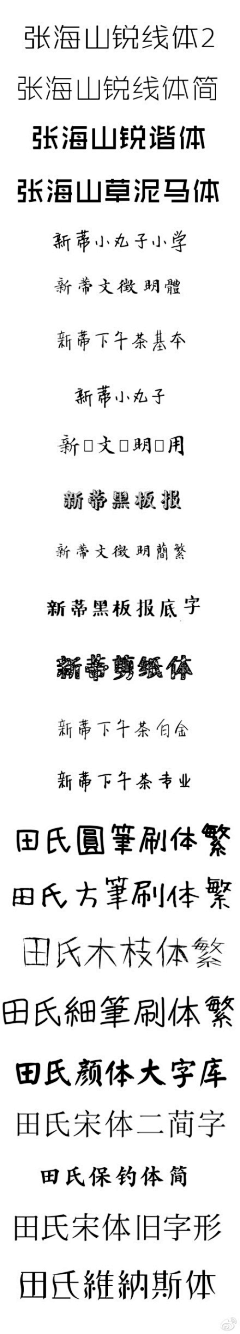 张海山锐线体2
张海山锐线体简
张海山锐谐体
张海山草泥马体
新蒂小丸子小学
新蒂文徵明體
新蒂下午茶基本
新蒂小丸子
新▯文▯明▯用
新蒂黑板报
新蒂文徵明簡繁
新蒂黑板报底字
新蒂剪纸体
新蒂下午茶白金
新蒂下午茶专业
田氏圓筆刷体繁
田氏方筆刷体繁
田氏木枝体繁
田氏細筆刷体繁
田氏颜体大字库
田氏宋体二茼字
田氏保钓体简
田氏宋体旧字形
田氏維納斯体